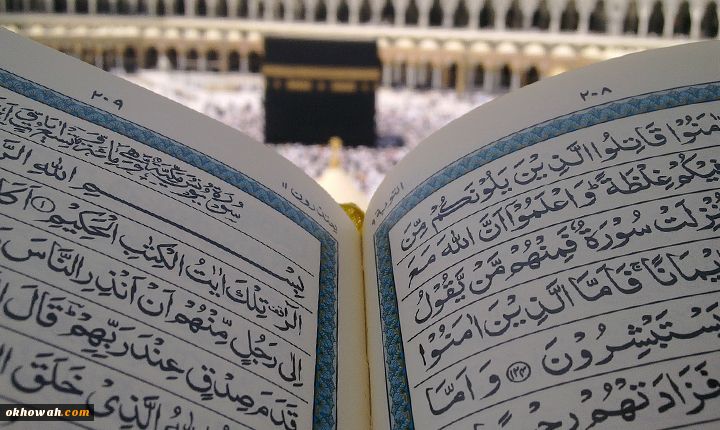 ٢٠٨
التوبة ٩
اٰمَنُوْا قَاتِلُوا الَّذِيْنَ يَلُوْنَكُمْ مِّنَ
فِيْكُمْ غِلْظَةً ؕ وَاعْلَمُوْۤا اَنَّ اللّٰهَ مَعَ
نْزِلَتْ سُوْرَةٌ فَمِنْهُمْ مَّنْ يَّقُوْلُ
اِيْمَانًا ۚ فَاَمَّا الَّذِيْنَ اٰمَنُوْا
يَسْتَبْشِرُوْنَ ﴿١٢٤﴾ وَاَمَّا
فَزَادَتْهُمْ رِجْسًا
٢٠٩
يعتذرون ١١
سُوْرَةُ يُوْنُسَ مَكِّيَّةٌ
بِسْمِ اللّٰهِ
الٓرٰ ۚ تِلْكَ اٰيٰتُ الْكِتٰبِ الْحَكِيْمِ ﴿١﴾ اَكَا
اِلٰى رَجُلٍ مِّنْهُمْ اَنْ اَنْذِرِ النَّاسَ
قَدَمَ صِدْقٍ عِنْدَ رَبِّهِمْ ؕ قَالَ
اللّٰهُ الَّذِيْ خَلَقَ
okhowah.com